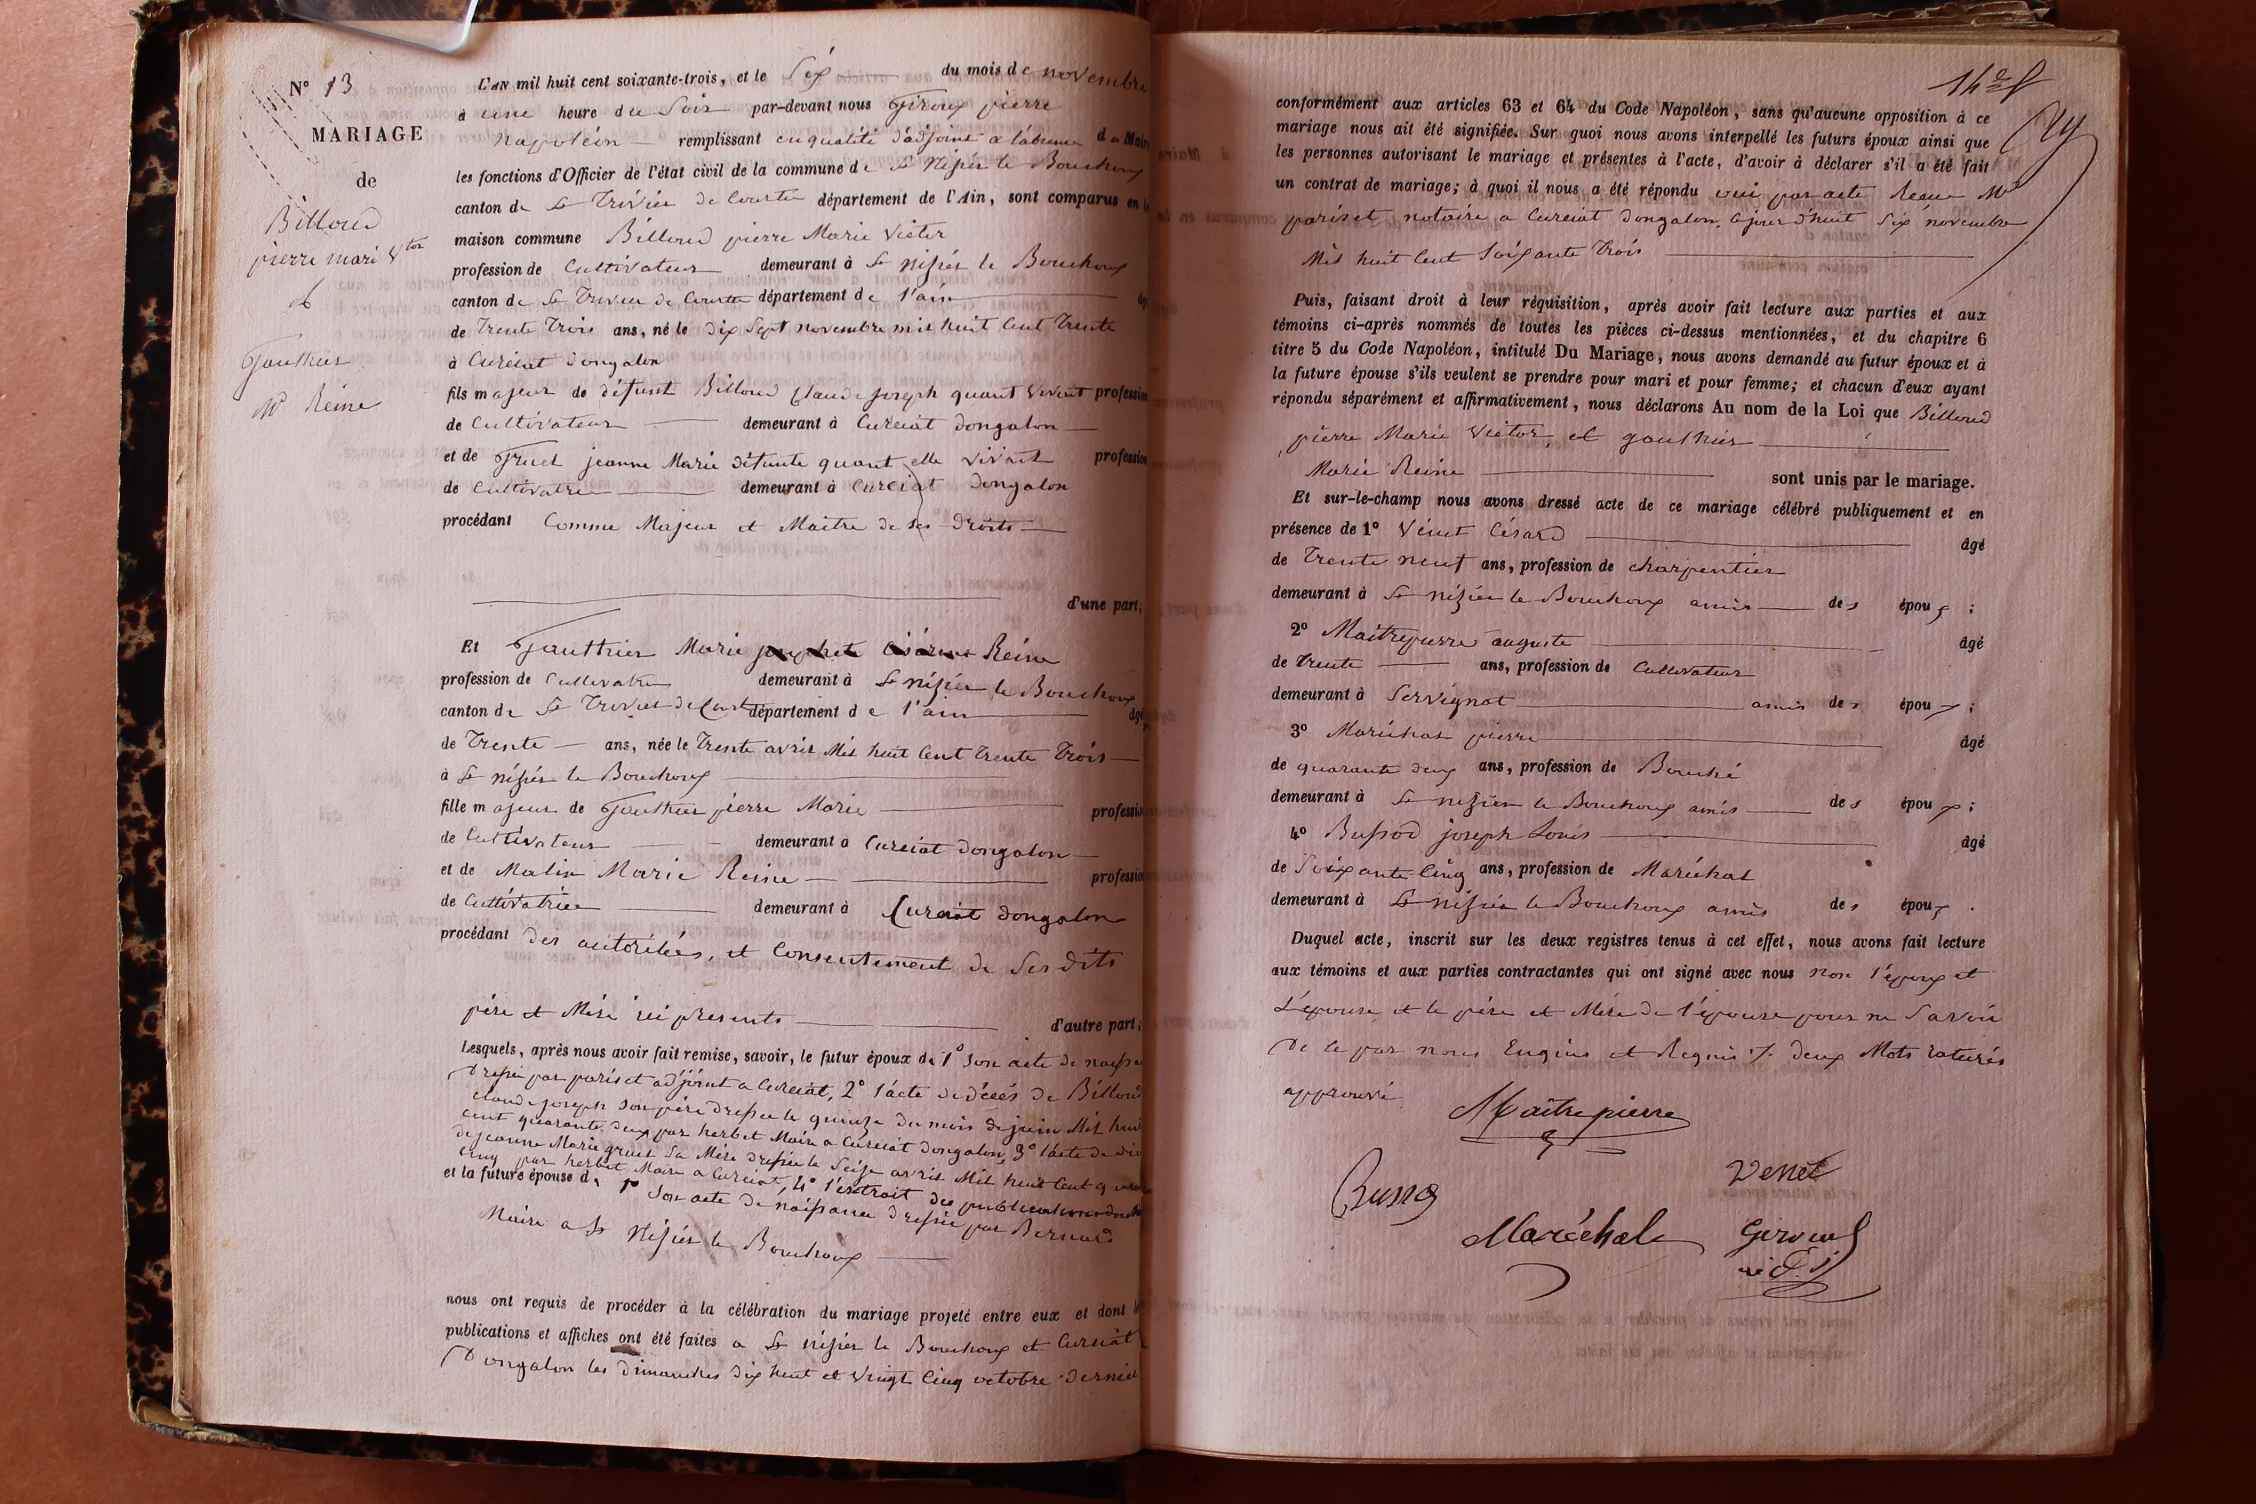 N° 13
MARIAGE
de
Billoud
pierre mari Vtor
&
Gauthier
Mie Reine
L'AN mil huit cent soixante-trois, et le Six du mois de novembre
à une heure du Soir par-devant nous Giroux pierre
Napoléon remplissant en qualité d'adjoint a l'absence du Maire
les fonctions d'Officier de l'état civil de la commune de St Nizier le Bouchoux
canton de St Trivier de Courtes département de l'Ain, sont comparus en la
maison commune Billoud pierre Marie Victor
profession de Cultivateur demeurant à St Nizier le Bouchoux
canton de St Trivier de Courtes département de l'ain âgé
de Trente Trois ans, né le dix Sept novembre mil huit Cent Trente
à Curciat dongalon
fils majeur de défunt Billoud Claude Joseph quant Vivait profession
de Cultivateur demeurant à Curciat dongalon
et de Gruel jeanne Marie défunte quant elle vivait profession
de Cultivatrice demeurant à Curciat dongalon
procédant Comme Majeur et Maitre de ses droits
d'une part;
Et Gauthier Marie Reine
profession de Cultivatrice demeurant à St nizier le Bouchoux
canton de St Trivier de Courtes département de l'ain âgé
de Trente ans, née le Trente avril Mil huit Cent Trente Trois
à St nizier le Bouchoux
fille majeure de Gauthier pierre Marie profession
de Cultivateur demeurant à Curciat dongalon
et de Malin Marie Reine profession
de Cultivatrice demeurant à Curciat dongalon
procédant des autorités, et Consentement de Ses dits
père et Mère ici presents d'autre part;
Lesquels, après nous avoir fait remise, savoir, le futur époux de 1° Son acte de naissance
Dressé par pariset adjoint a Curciat, 2° l'acte de décés de Billoud
claude joseph Son père dressé le quinze du mois de juin Mil huit
cent quarante deux par herbet Maire a Curciat dongalon, 3° l'acte de décé
de jeanne Marie gruel Sa Mère dressé le Seize avril Mil huit Cent quarante
cinq par herbet Maire a Curciat, 4° l'extrait des publications
et la future épouse de 1° Son acte de naissance dressé par Bernard
Maire a St Nizier le Bouchoux
nous ont requis de procéder à la célébration du mariage projeté entre eux et dont les
publications et affiches ont été faites a St nizier le Bouchoux et Curciat
Dongalon les dimanches dix huit et Vingt Cinq octobre dernier
conformément aux articles 63 et 64 du Code Napoléon, sans qu'aucune opposition à ce
mariage nous ait été signifiée. Sur quoi nous avons interpellé les futurs époux ainsi que
les personnes autorisant le mariage et présentes à l'acte, d'avoir à déclarer s'il a été fait
un contrat de mariage; à quoi il nous a été répondu oui par acte Recue Me
pariset notaire a Curciat dongalon, le jour d'huit Six novembre
Mil huit Cent Soixante Trois
Puis, faisant droit à leur réquisition, après avoir fait lecture aux parties et aux
témoins ci-après nommés de toutes les pièces ci-dessus mentionnées, et du chapitre 6
titre 5 du Code Napoléon, intitulé Du Mariage, nous avons demandé au futur époux et à
la future épouse s'ils veulent se prendre pour mari et pour femme; et chacun d'eux ayant
répondu séparément et affirmativement, nous déclarons Au nom de la Loi que Billoud
pierre Marie Victor, et gauthier
Marie Reine sont unis par le mariage.
Et sur-le-champ nous avons dressé acte de ce mariage célébré publiquement et en
présence de 1° Vénet Césard âgé
de Trente neuf ans, profession de charpentier
demeurant à St nizier le Bouchoux amis des époux;
2° Maitrepierre auguste âgé
de trente ans, profession de Cultivateur
demeurant à Servignat amis des époux;
3° Maréchal pierre âgé
de quarante deux ans, profession de Bouché
demeurant à St nizier le Bouchoux amis des époux;
4° Bussod joseph Louis âgé
de Soixante Cinq ans, profession de Maréchal
demeurant à St nizier le Bouchoux amis des époux.
Duquel acte, inscrit sur les deux registres tenus à cet effet, nous avons fait lecture
aux témoins et aux parties contractantes qui ont signé avec nous non l'époux et
L'épouse et le père et Mère de l'épouse pour ne Savoir
De ce par nous Enquis et Requis ./. deux Mots raturés
approuvé
Maitrepierre
Venet
Bussod
Maréchal Giroux